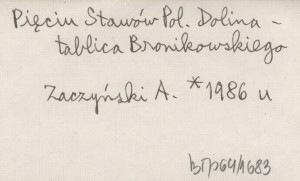 Pięciu Stawów Pol. Dolina -
tablica Bronikowskiego
Zaczyński A. *1986 u